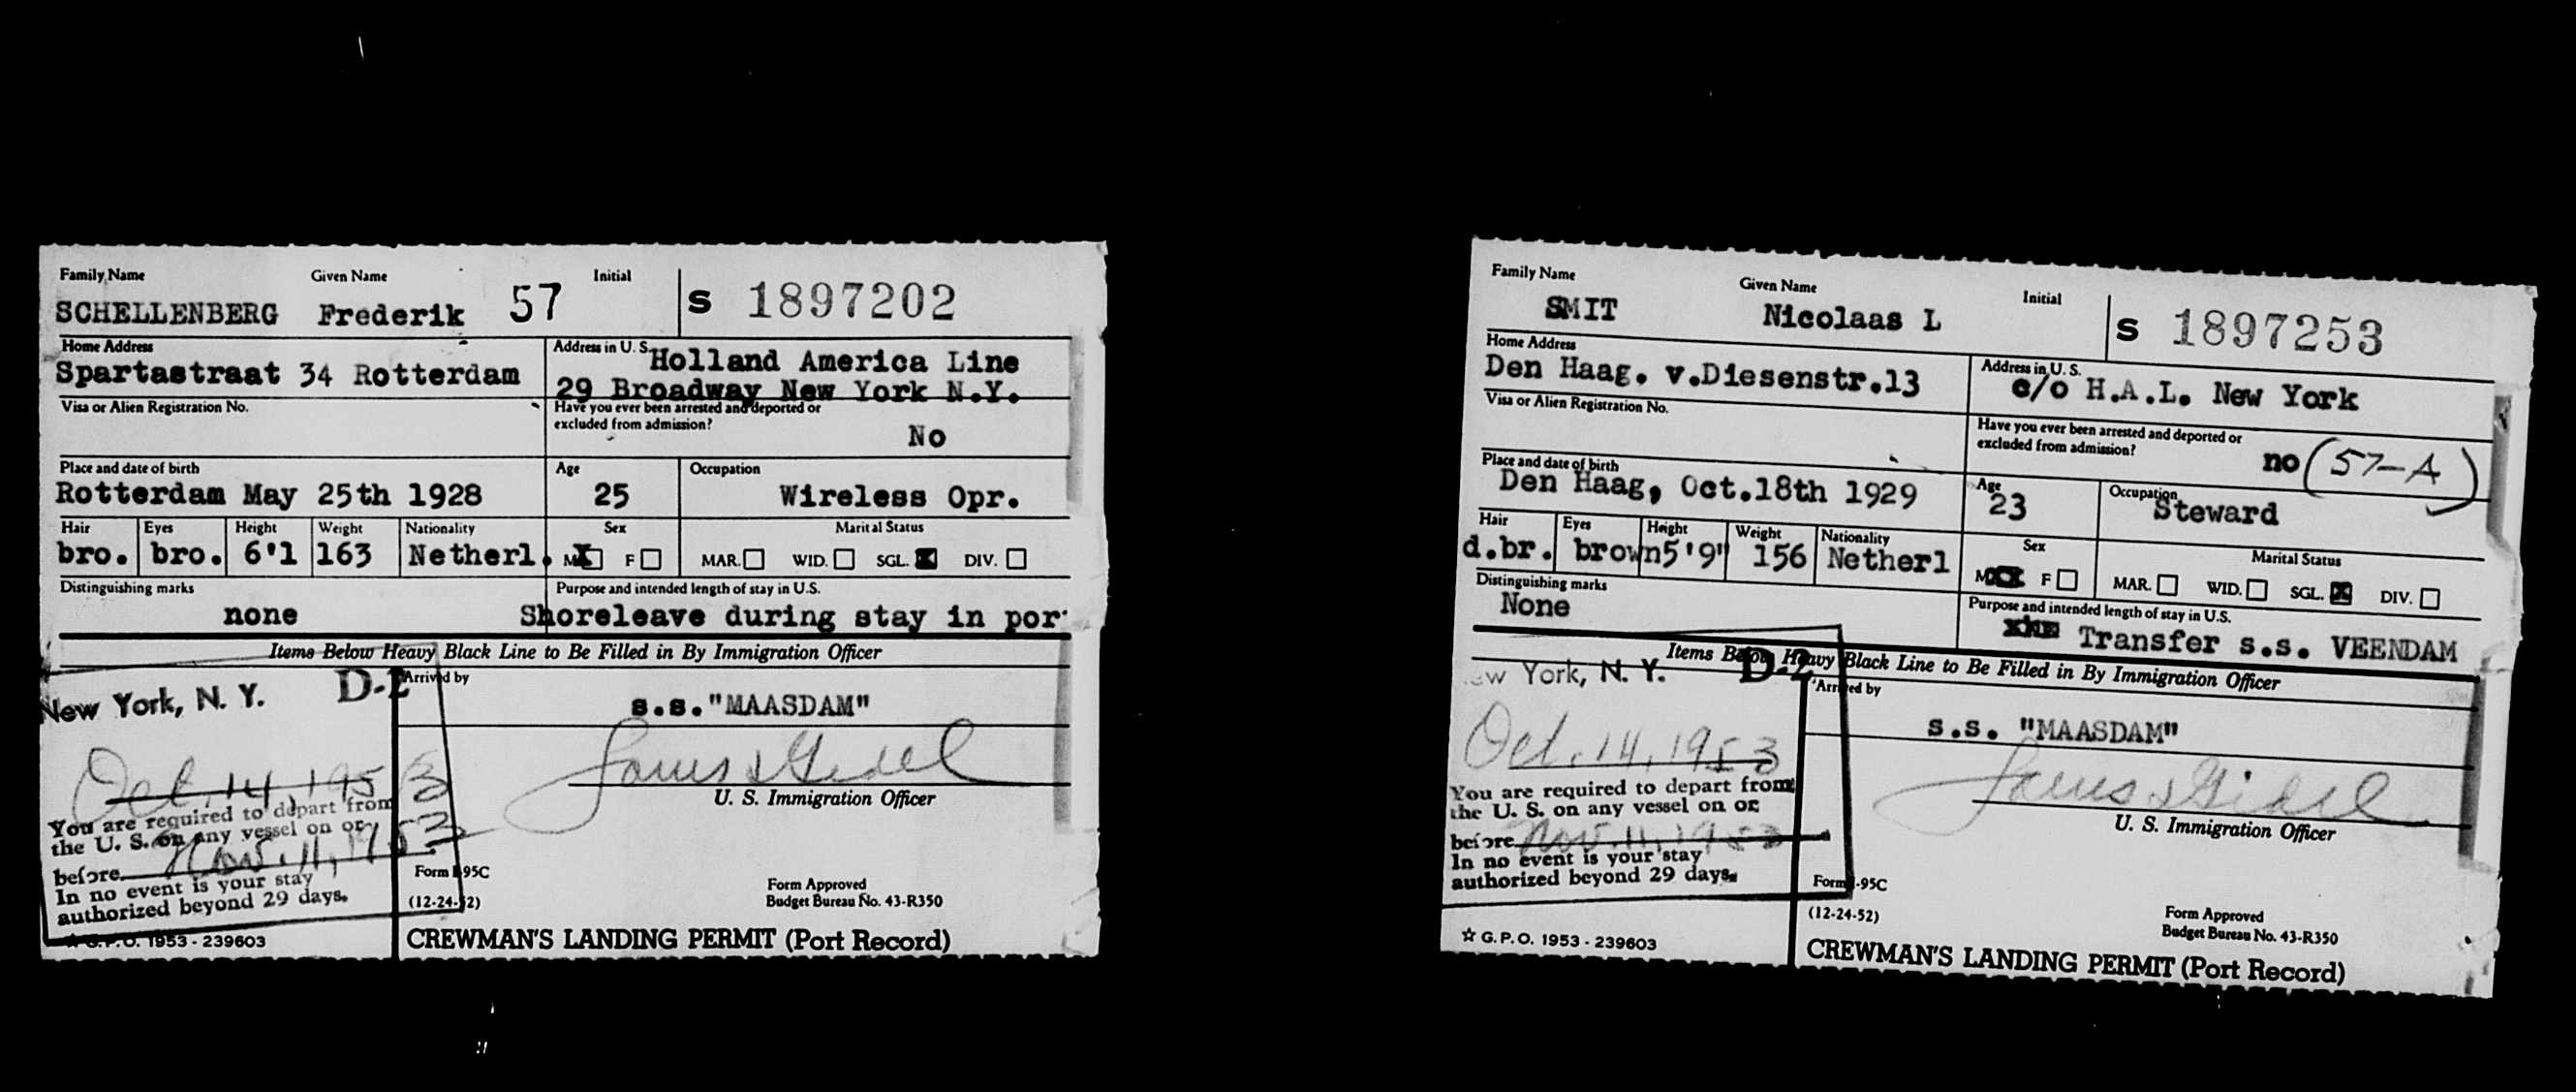 Family Name Given Name Initial
SCHELLENBERG Frederik 57 S 1897202
Home Address Address in U. S.
Spartastraat 34 Rotterdam Holland America Line
29 Broadway New York N.Y.
Visa or Alien Registration No. Have you ever been arrested and deported or
excluded from admission?
No
Place and date of birth Age Occupation
Rotterdam May 25th 1928 25 Wireless Opr.
Hair Eyes Height Weight Nationality Sex Marital Status
bro. bro. 6'1 163 Netherl. M X F MAR. WID. SGL. X DIV.
Distinguishing marks Purpose and intended length of stay in U.S.
none Shoreleave during stay in por
Items Below Heavy Black Line to Be Filled in By Immigration Officer
New York, N. Y. D-2 Arrived by
s.s."MAASDAM"
Oct. 14, 1953
U. S. Immigration Officer
You are required to depart from
the U. S. on any vessel on or
before Nov. 11, 1953
In no event is your stay
authorized beyond 29 days.
Form I-95C
(12-24-52)
Form Approved
Budget Bureau No. 43-R350
☆ G.P.O. 1953 - 239603
CREWMAN'S LANDING PERMIT (Port Record)
Family Name Given Name Initial
SMIT Nicolaas L S 1897253
Home Address Address in U. S.
Den Haag. v.Diesenstr.13 c/o H.A.L. New York
Visa or Alien Registration No. Have you ever been arrested and deported or
excluded from admission?
no (57-A)
Place and date of birth Age Occupation
Den Haag, Oct.18th 1929 23 Steward
Hair Eyes Height Weight Nationality Sex Marital Status
d.br. brown 5'9" 156 Netherl M F MAR. WID. SGL. X DIV.
Distinguishing marks Purpose and intended length of stay in U.S.
None Transfer s.s. VEENDAM
Items Below Heavy Black Line to Be Filled in By Immigration Officer
ew York, N. Y. D-2 Arrived by
s.s. "MAASDAM"
Oct. 14, 1953
U. S. Immigration Officer
You are required to depart from
the U. S. on any vessel on or
before Nov. 11, 1953
In no event is your stay
authorized beyond 29 days.
Form I-95C
(12-24-52)
Form Approved
Budget Bureau No. 43-R350
☆ G.P.O. 1953 - 239603
CREWMAN'S LANDING PERMIT (Port Record)